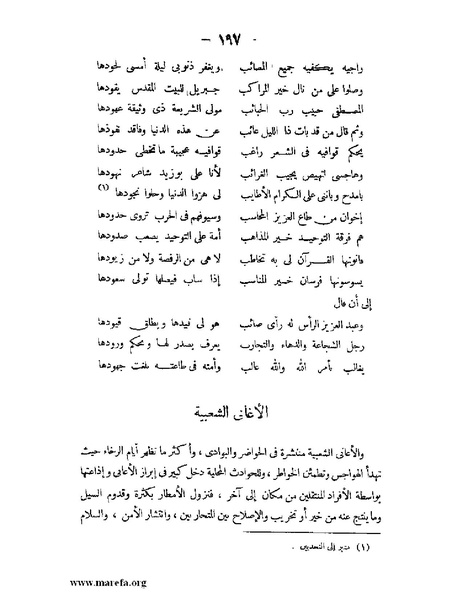 — ١٩٧ —
راجيه يكفيه جميع المصائب ويغفر ذنوبى ليلة أمسى لحودها
وصلوا على من نال خير المراكب جبريل للبيت المقدس يقودها
المصطفى حبيب رب الحبائب مولى الشريعة ذى وثيقة عهودها
وثم قال من قد بات ذا الليل عائب عن هذه الدنيا وفاقد نفوذها
يحكم قوافيه فى الشعر راغب قوافيه عجيبة ما تخطى حدودها
وهاجسى نهيض يجيب الغرائب لأنا على بوزيد شاعر نهودها
بامدح وباثنى على الكرام الأطايب لى هزوا الدنيا وحلوا نجودها (١)
إخوان من طاع العزيز المحاسب وسيوفهم فى الحرب تروى حدودها
هم فرقة التوحيد خير المذاهب أمة على التوحيد يصعب صدودها
قانونها القرآن لى به تخاطب لا هى من الرفضة ولا من زيودها
يسوسونها فرسان خير المناسب إذا ساب فيصلها تولى سعودها
إلى أن قال
وعبد العزيز الرأس له رأى صائب هو لى قيدها ويطلق قيودها
رجل الشجاعة والدهاء والتجارب يعرف بصدر لها ومحكم ورودها
يغالب بأمر الله والله غالب وأمته فى طاعته بلغت جهودها
الأغانى الشعبية
والأغانى الشعبية منتشرة فى الحواضر والبوادى ، وأكثر ما تظهر أيام الرخاء حيث
تهدأ الهواجس وتطمئن الخواطر ، وللحوادث المحلية دخل كبير فى إبراز الأغانى وإذاعتها
بواسطة الأفراد المنتقلين من مكان إلى آخر ، فنزول الأمطار بكثرة وقدوم السيل
وما ينتج عنه من خير أو تخريب والإصلاح بين المتحاربين ، وانتشار الأمن ، والسلام
(١) مشير إلى النجديين .
www.marefa.org